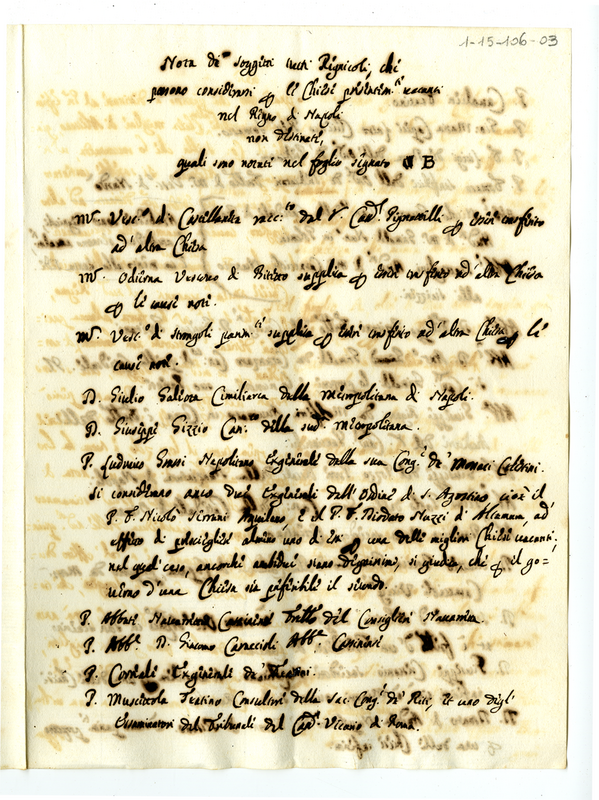 1-15-106-03
Nota de' soggetti tutti Regnicoli, che
possono considerarsi p le Chiese vacanti
nel Regno di Napoli
non destinati,
quali sono notati nel foglio signato B
Mr. Vesc.o di Castellaneta racc.to dal S. Card. Pignatelli p esser trasferito
ad' altra Chiesa
Mr. Odierna Vescovo di supplica p esser trasferito ad' altra Chiesa
p le cause note.
Mr. Vesc.o di Strongoli supplica p esser trasferito ad' altra Chiesa p le
cause note.
D. Giulio Galiota Cimiliarca della Metropolitana di Napoli.
D. Giuseppe Gizzio Can.co della sud.a Metropolitana.
P. Ludovico Grossi Napolitano Exgenerale della sua Cong.e de' Monaci Celestini.
Si considerano anco due Exgenerali dell' Ordine di S. Agostino cioè il
P. F. Nicolò Serrani Aquilano, e il P. F. Diodato Nuzzi d' Altamura, ad'
effetto di prescegliere almeno uno di essi p una delle migliori Chiese vacanti.
nel qual caso, ancorche ambidue siano degnissimi, si giudica, che p il go=
verno d'una Chiesa sia preferibile il secondo.
P. Abbate Navarrino Casinense fratello del Consigliere Navarrino.
P. Abb.e D. Giacomo Caraccioli Abb.e Casinense
P. Correale Exgenerale de' Teatini.
P. Muscettola Teatino Consultore della Sac. Cong.e de' Riti, et uno degl'
Esaminatori del Tribunale del Card. Vicario di Roma.